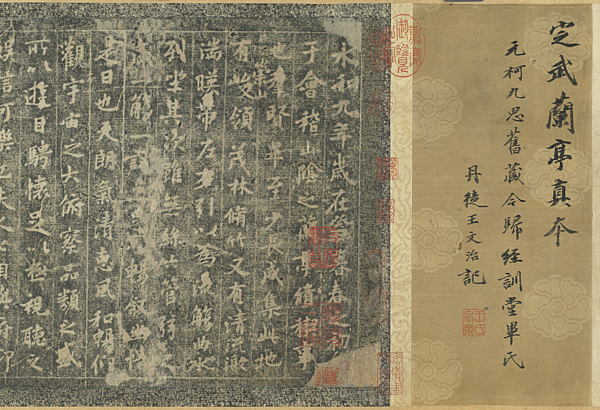 定武蘭亭真本
元柯九思舊藏今歸經訓堂畢氏
丹徒王文治記
永和九年歲在癸丑暮春之初
于會稽山陰之蘭亭脩稧事
也羣賢畢至少長咸集此地
崇山
有峻領茂林脩竹又有清流激
湍暎帶左右引以爲流觴曲水
列坐其次雖無絲竹管弦之
一觴一詠 暢敘幽情
是日也天朗氣清惠風和暢仰
觀宇宙之大俯察品類之盛
所以遊目騁懷足以極視聽之
信可樂也夫人之相與俯仰